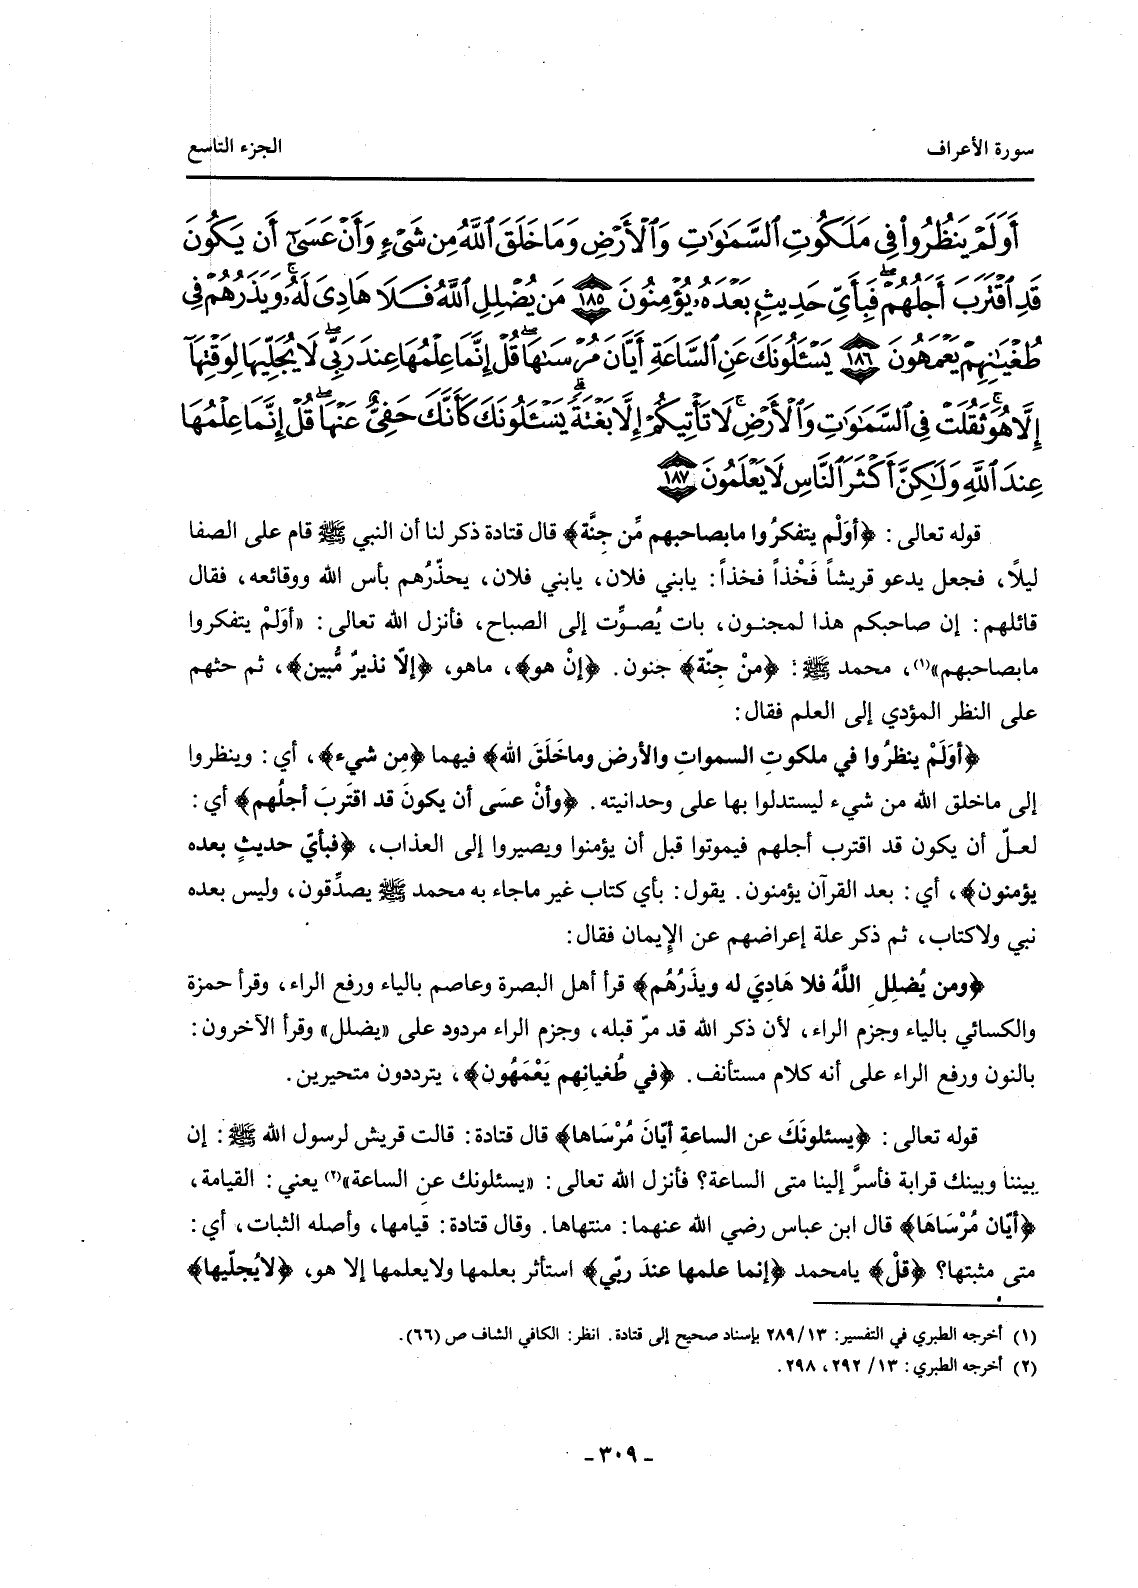 سورة الأعراف
الجزء التاسع
أَوَلَمْ يَنظُرُوا۟ فِى مَلَكُوتِ ٱلسَّمَٰوَٰتِ وَٱلْأَرْضِ وَمَا خَلَقَ ٱللَّهُ مِن شَىْءٍ وَأَنْ عَسَىٰٓ أَن يَكُونَ
قَدِ ٱقْتَرَبَ أَجَلُهُمْ ۖ فَبِأَىِّ حَدِيثٍۭ بَعْدَهُۥ يُؤْمِنُونَ ١٨٥ مَن يُضْلِلِ ٱللَّهُ فَلَا هَادِىَ لَهُۥ ۚ وَيَذَرُهُمْ فِى
طُغْيَٰنِهِمْ يَعْمَهُونَ ١٨٦ يَسْـَٔلُونَكَ عَنِ ٱلسَّاعَةِ أَيَّانَ مُرْسَىٰهَا ۖ قُلْ إِنَّمَا عِلْمُهَا عِندَ رَبِّى ۖ لَا يُجَلِّيهَا لِوَقْتِهَآ
إِلَّا هُوَ ۚ ثَقُلَتْ فِى ٱلسَّمَٰوَٰتِ وَٱلْأَرْضِ ۚ لَا تَأْتِيكُمْ إِلَّا بَغْتَةً ۗ يَسْـَٔلُونَكَ كَأَنَّكَ حَفِىٌّ عَنْهَا ۖ قُلْ إِنَّمَا عِلْمُهَا
عِندَ ٱللَّهِ وَلَٰكِنَّ أَكْثَرَ ٱلنَّاسِ لَا يَعْلَمُونَ ١٨٧
قوله تعالى: ﴿أوَلَمْ يتفكرُوا مابصاحبهم مِّن جِنَّة﴾ قال قتادة ذكر لنا أن النبي ﷺ قام على الصفا
ليلًا، فجعل يدعو قريشاً فَخْذاً فخذاً: يابني فلان، يابني فلان، يحذّرُهم بأس الله ووقائعه، فقال
قائلهم: إن صاحبكم هذا لمجنون، بات يُصوِّت إلى الصباح، فأنزل الله تعالى: «أوَلمْ يتفكروا
مابصاحبهم»(١)، محمد ﷺ: ﴿منْ جِنّة﴾ جنون. ﴿إنْ هو﴾، ماهو، ﴿إلّا نذيرٌ مُّبين﴾، ثم حثهم
على النظر المؤدي إلى العلم فقال:
﴿أوَلَمْ ينظرُوا في ملكوتِ السمواتِ والأرضِ وماخَلَقَ الله﴾ فيهما ﴿مِن شيء﴾، أي: وينظروا
إلى ماخلق الله من شيء ليستدلوا بها على وحدانيته. ﴿وأنْ عسَى أن يكونَ قد اقتَربَ أجلُهم﴾ أي:
لعلّ أن يكون قد اقترب أجلهم فيموتوا قبل أن يؤمنوا ويصيروا إلى العذاب، ﴿فبأيّ حديثٍ بعده
يؤمنون﴾، أي: بعد القرآن يؤمنون. يقول: بأي كتاب غير ماجاء به محمد ﷺ يصدِّقون، وليس بعده
نبي ولاكتاب، ثم ذكر علة إعراضهم عن الإيمان فقال:
﴿ومن يُضللِ اللَّهُ فلا هَادِيَ له ويذَرُهُم﴾ قرأ أهل البصرة وعاصم بالياء ورفع الراء، وقرأ حمزة
والكسائي بالياء وجزم الراء، لأن ذكر الله قد مرّ قبله، وجزم الراء مردود على «يضلل» وقرأ الآخرون:
بالنون ورفع الراء على أنه كلام مستأنف. ﴿في طُغيانِهم يَعْمَهُون﴾، يترددون متحيرين.
قوله تعالى: ﴿يسئلونَكَ عن الساعةِ أيّانَ مُرْسَاها﴾ قال قتادة: قالت قريش لرسول الله ﷺ: إن
بيننا وبينك قرابة فأسرَّ إلينا متى الساعة؟ فأنزل الله تعالى: «يسئلونك عن الساعة»(٢) يعني: القيامة،
﴿أيّان مُرْسَاهَا﴾ قال ابن عباس رضي الله عنهما: منتهاها. وقال قتادة: قيامها، وأصله الثبات، أي:
متى مثبتها؟ ﴿قلْ﴾ يامحمد ﴿إنما علمها عندَ ربّي﴾ استأثر بعلمها ولايعلمها إلا هو، ﴿لايُجلّيها﴾
(١) أخرجه الطبري في التفسير: ١٣/ ٢٨٩ بإسناد صحيح إلى قتادة. انظر: الكافي الشاف ص (٦٦).
(٢) أخرجه الطبري: ١٣/ ٢٩٢، ٢٩٨.
- ٣٠٩ -